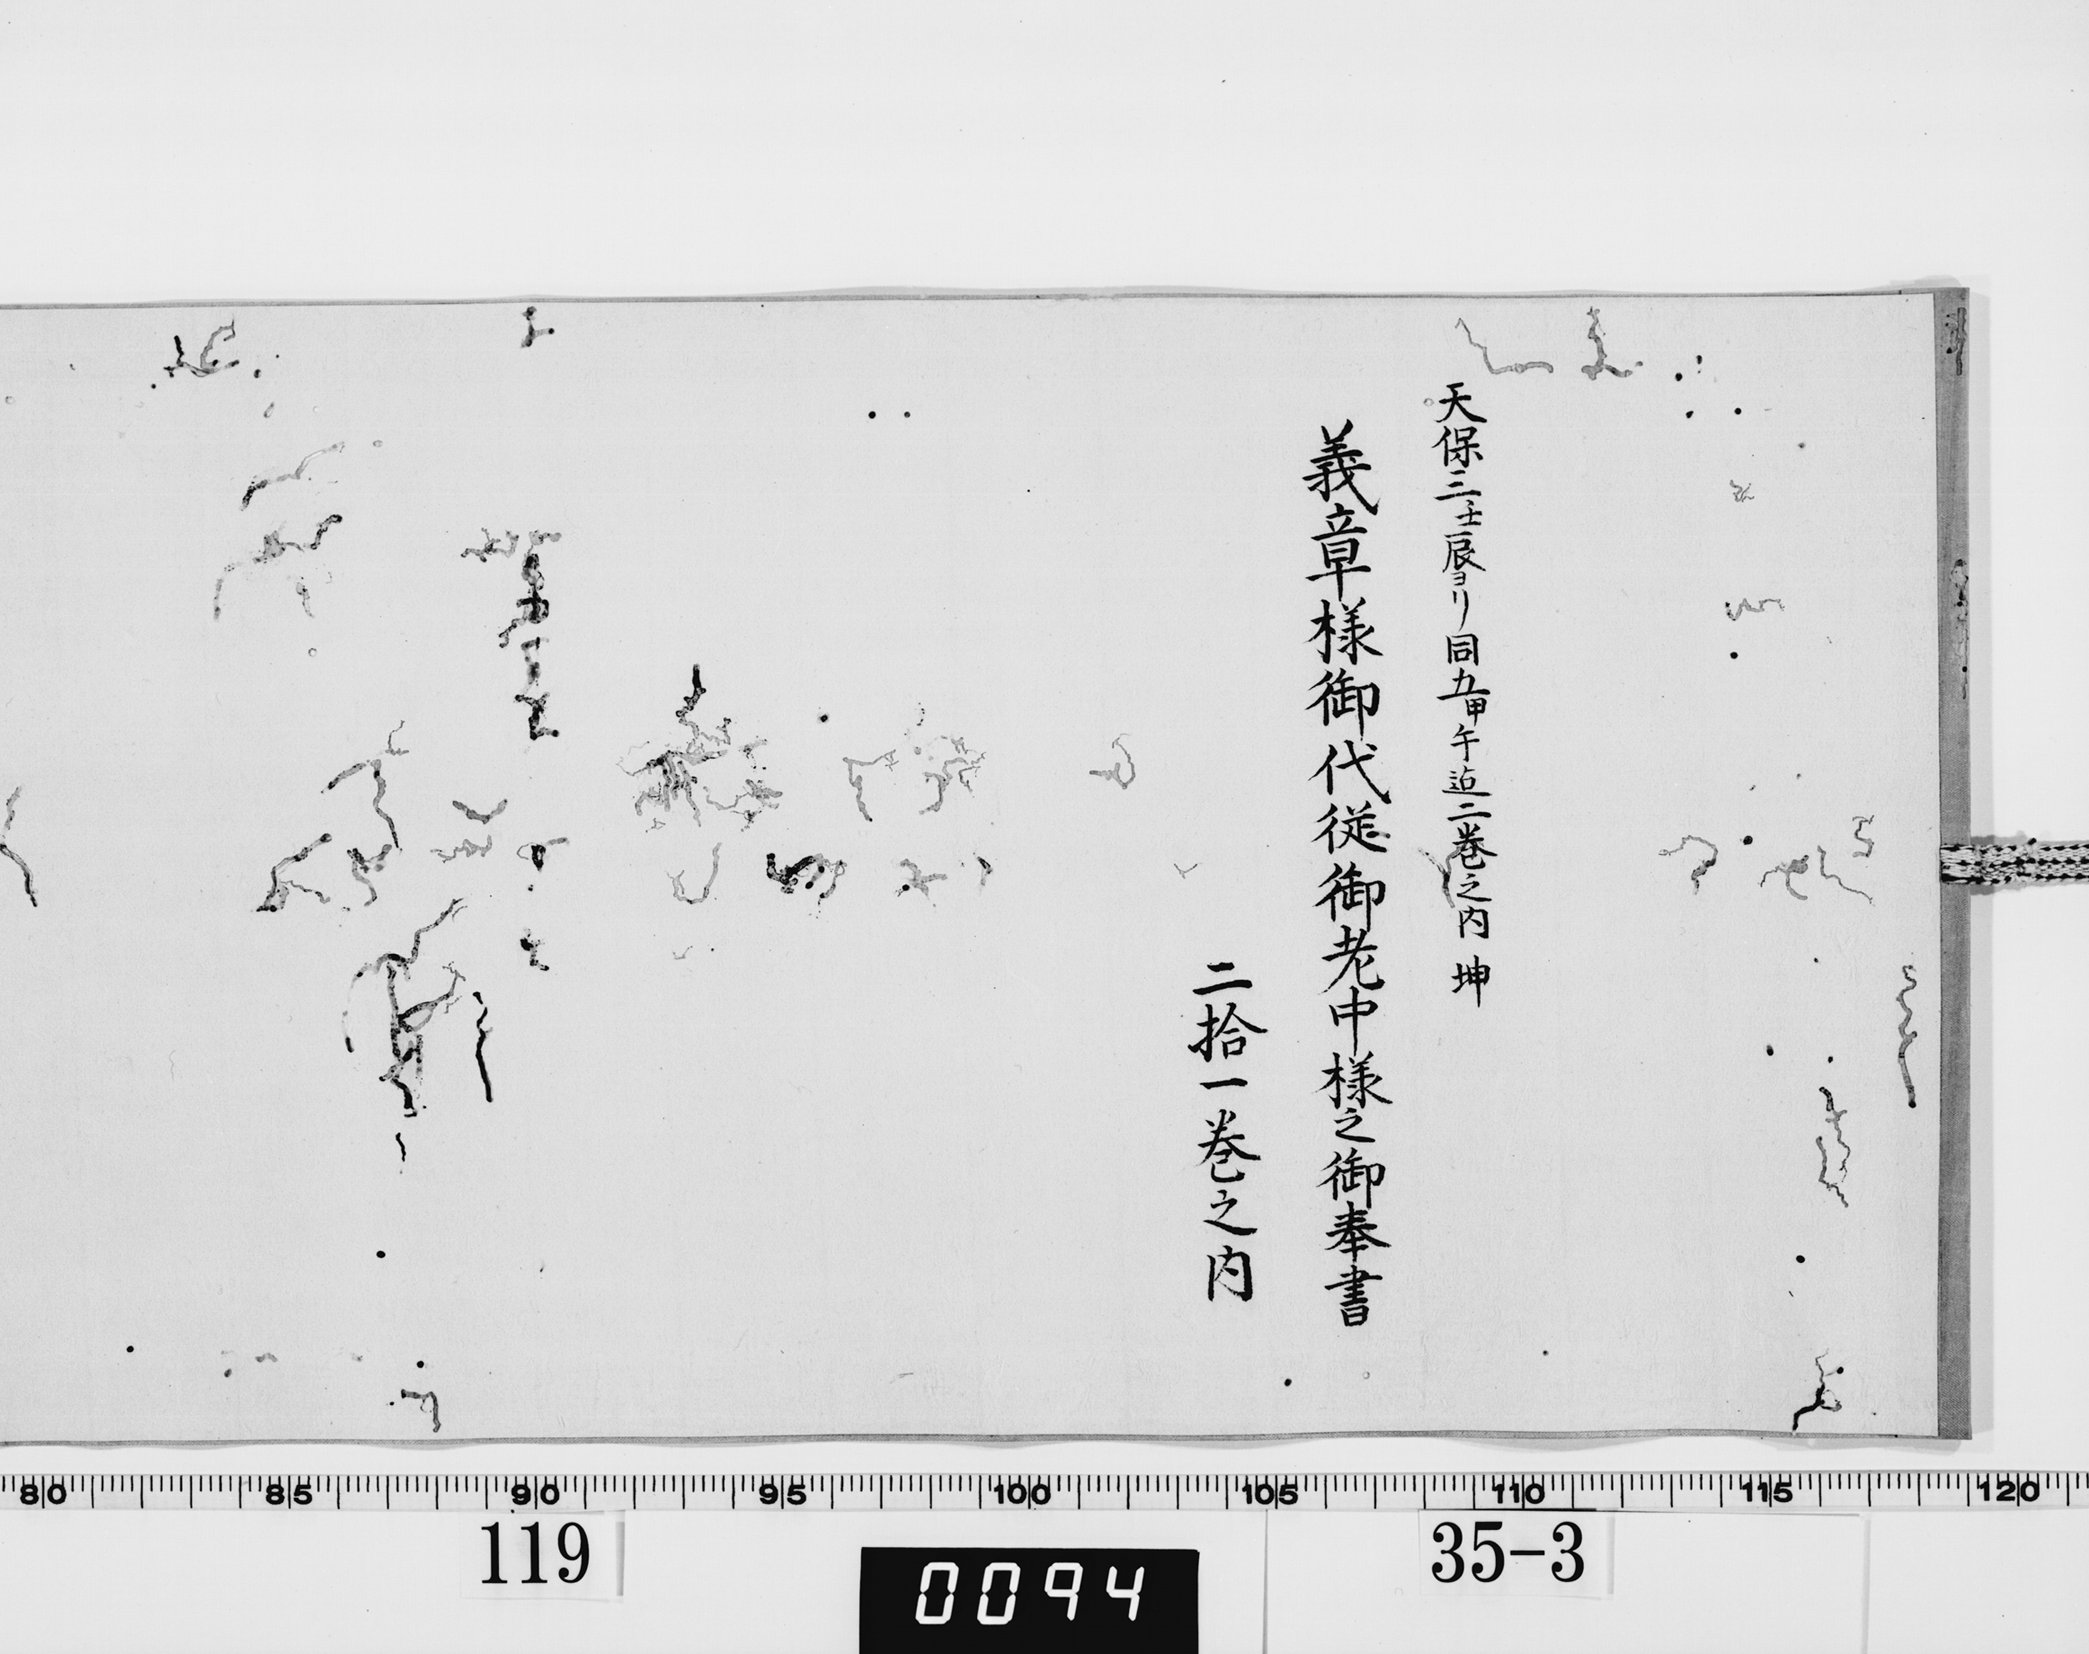 天保三壬辰ヨリ同五甲午迠二巻之内 坤
義章様御代従御老中様之御奉書
二拾一巻之内
80 85 90 95 100 105 110 115 120
119
0094
35-3